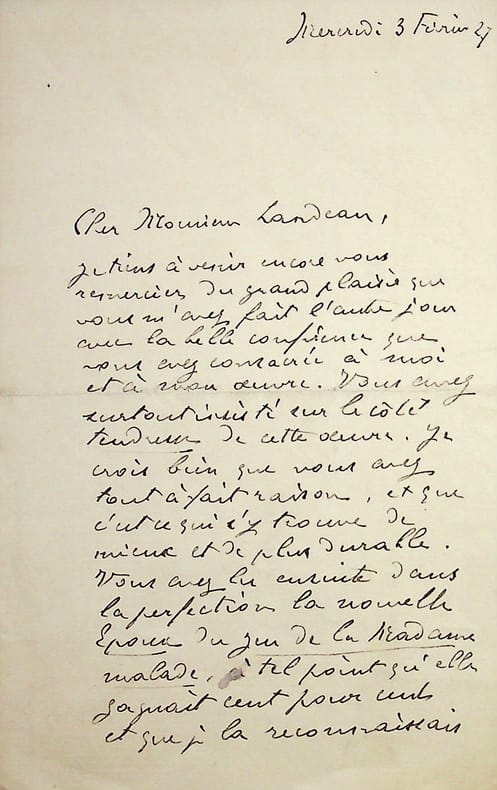 Mercredi 3 Février 27
Cher Monsieur Landeau,
je tiens à venir encore vous
remercier du grand plaisir que
vous m'avez fait l'autre jour
avec la belle conférence que
vous avez consacrée à moi
et à mon œuvre. Vous avez
surtout insisté sur le côté
tendresse de cette œuvre. Je
crois bien que vous avez
tout à fait raison, et que
c'est ce qui s'y trouve de
mieux et de plus durable.
Vous avez lu ensuite dans
la perfection la nouvelle
du jeu de la Madame
malade, à tel point qu'elle
gagnait cent pour cent
et que je la reconnaissais